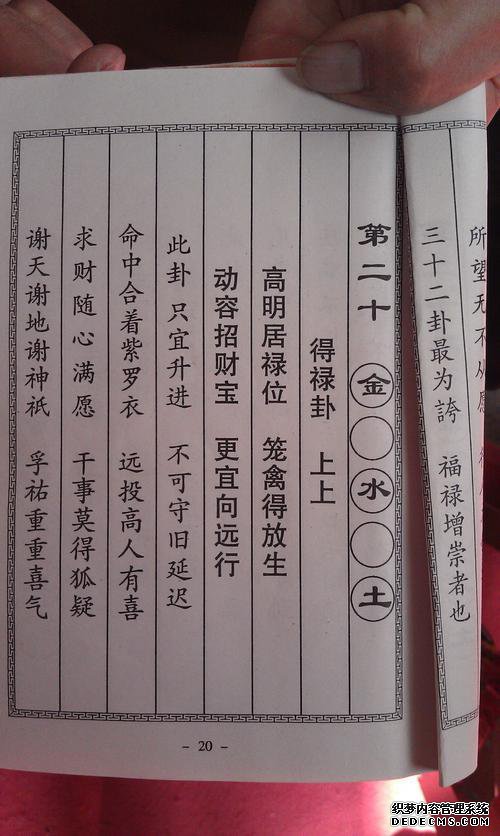 所望无不从愿
三十二卦最为誇 福禄增崇者也
第二十 金〇水〇土
得禄卦 上上
高明居禄位 笼禽得放生
动容招财宝 更宜向远行
此卦只宜升进 不可守旧延迟
命中合着紫罗衣 远投高人有喜
求财随心满愿 干事莫得狐疑
谢天谢地谢神祇 孚祐重重喜气
- 20 -
织梦内容管理系统
DEDECMS.COM